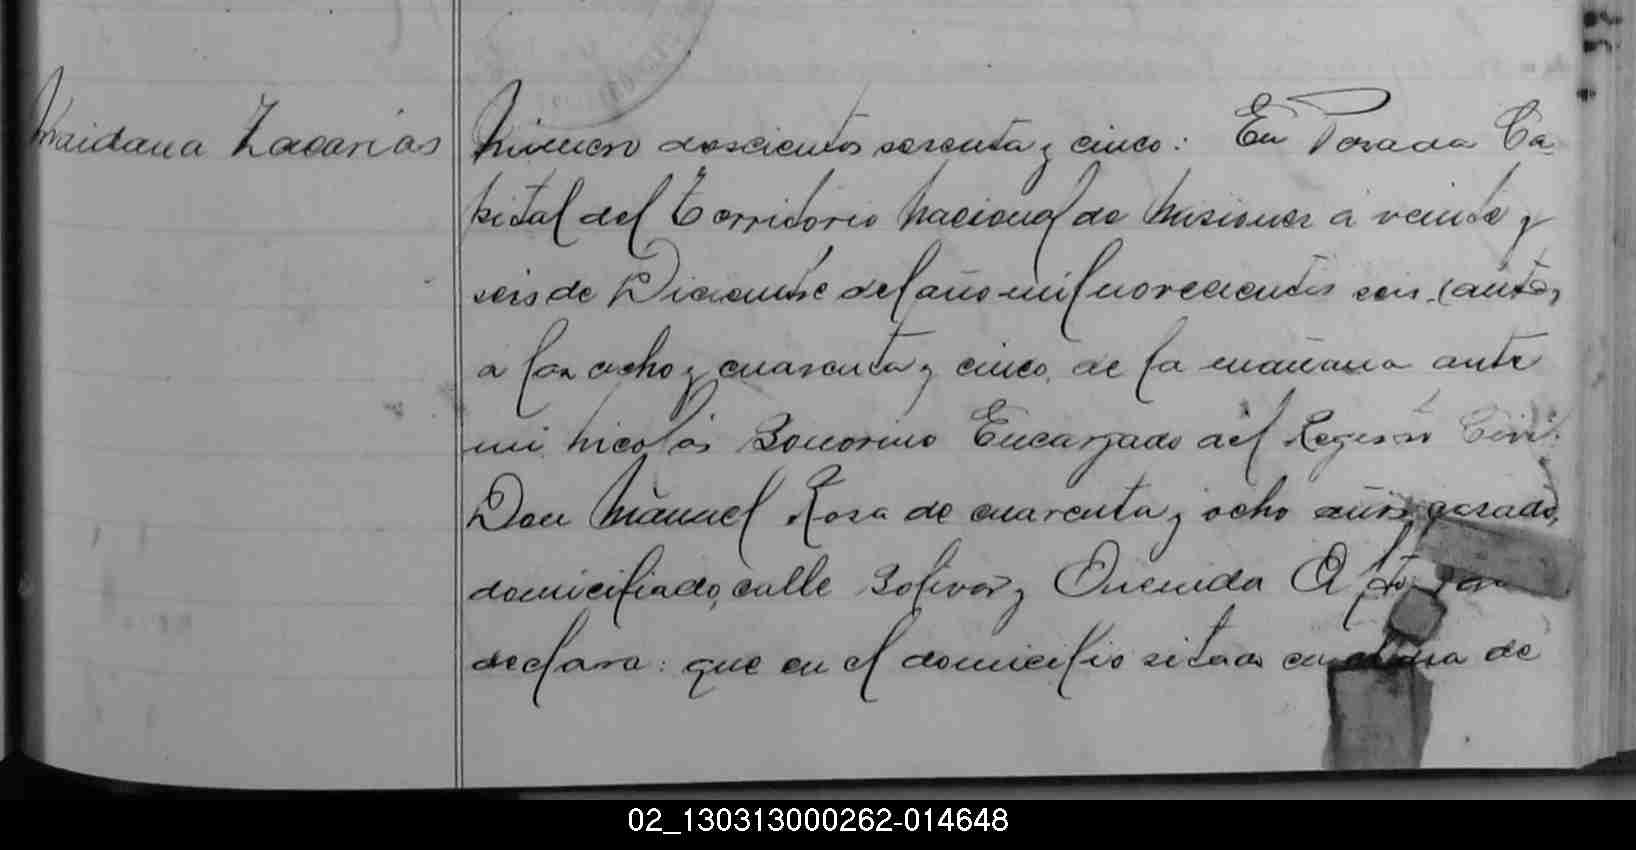 Maidana Zacarias
Número doscientos sesenta y cinco: En Posada Ca-
pital del Territorio Nacional de Misiones á veinte y
seis de Diciembre del año mil novecientos seis
á las ocho y cuarenta y cinco de la mañana ante
mi Nicolás Bonorino Encargado del Registro Civil
Don Manuel Rosa de cuarenta y ocho años, casado,
domiciliado, calle Bolivar y
declara: que en el domicilio sitado en de
02_130313000262-014648